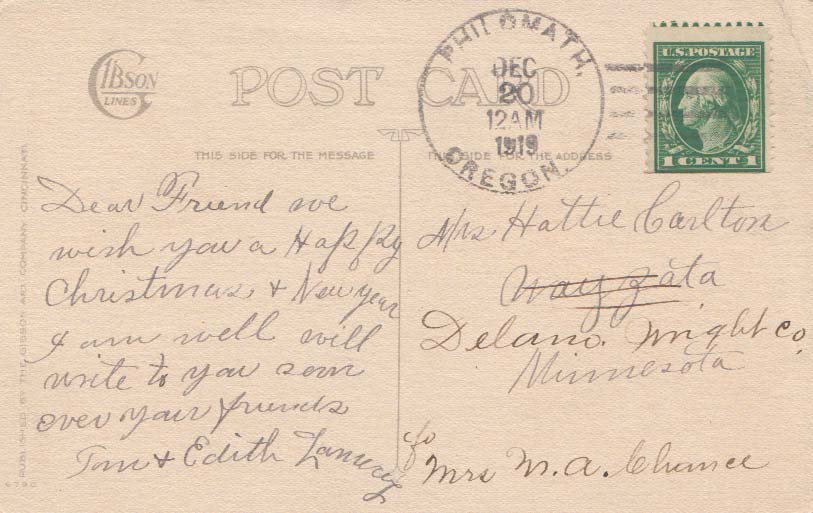 GIBSON
LINES
POST CARD
PHILOMATH,
DEC
20
12AM
1919
OREGON.
U.S. POSTAGE
1 CENT 1
THIS SIDE FOR THE MESSAGE
THIS SIDE FOR THE ADDRESS
PUBLISHED BY THE GIBSON ART COMPANY CINCINNATI
Dear Friend we
wish you a Happy
Christmas + New year
I am well will
write to you soon
ever your friends
Tom + Edith
Mrs Hattie Carlton
Wayzata
Delano. Wright Co,
Minnesota
c/o
Mrs M.A. Chance